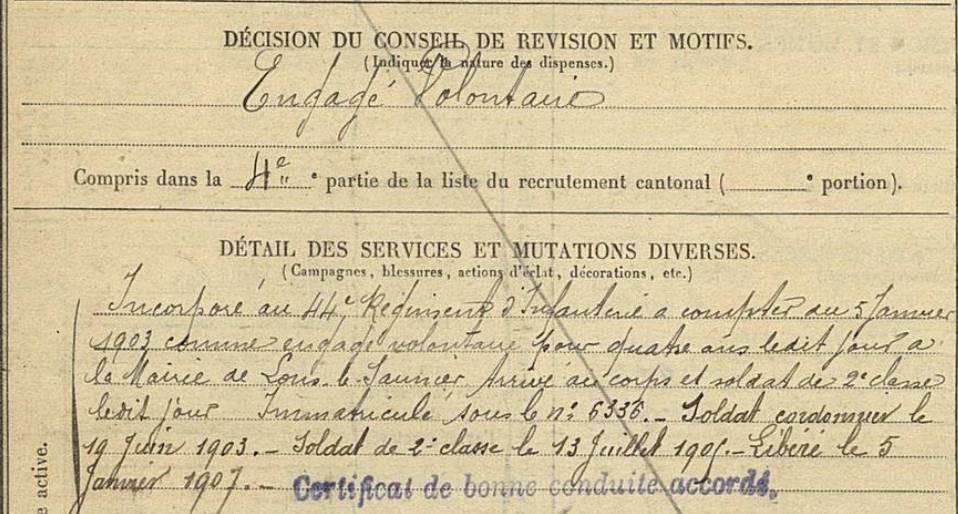 DÉCISION DU CONSEIL DE REVISION ET MOTIFS.
(Indiquer la nature des dispenses.)
Engagé Volontaire
Compris dans la 4e " e partie de la liste du recrutement cantonal ( e portion).
DÉTAIL DES SERVICES ET MUTATIONS DIVERSES.
(Campagnes, blessures, actions d'éclat, décorations, etc.)
Incorporé au 44e Régiment d'Infanterie a compter du 5 Janvier
1903 comme engagé volontaire pour quatre ans ledit jour a
la Mairie de Lons-le-Saunier Arrivé au corps et soldat de 2e classe
ledit jour Immatriculé sous le no 6336. - Soldat cordonnier le
19 Juin 1903. - Soldat de 2e classe le 13 Juillet - Libéré le 5
Janvier 1907. - Certificat de bonne conduite accordé.
e active.